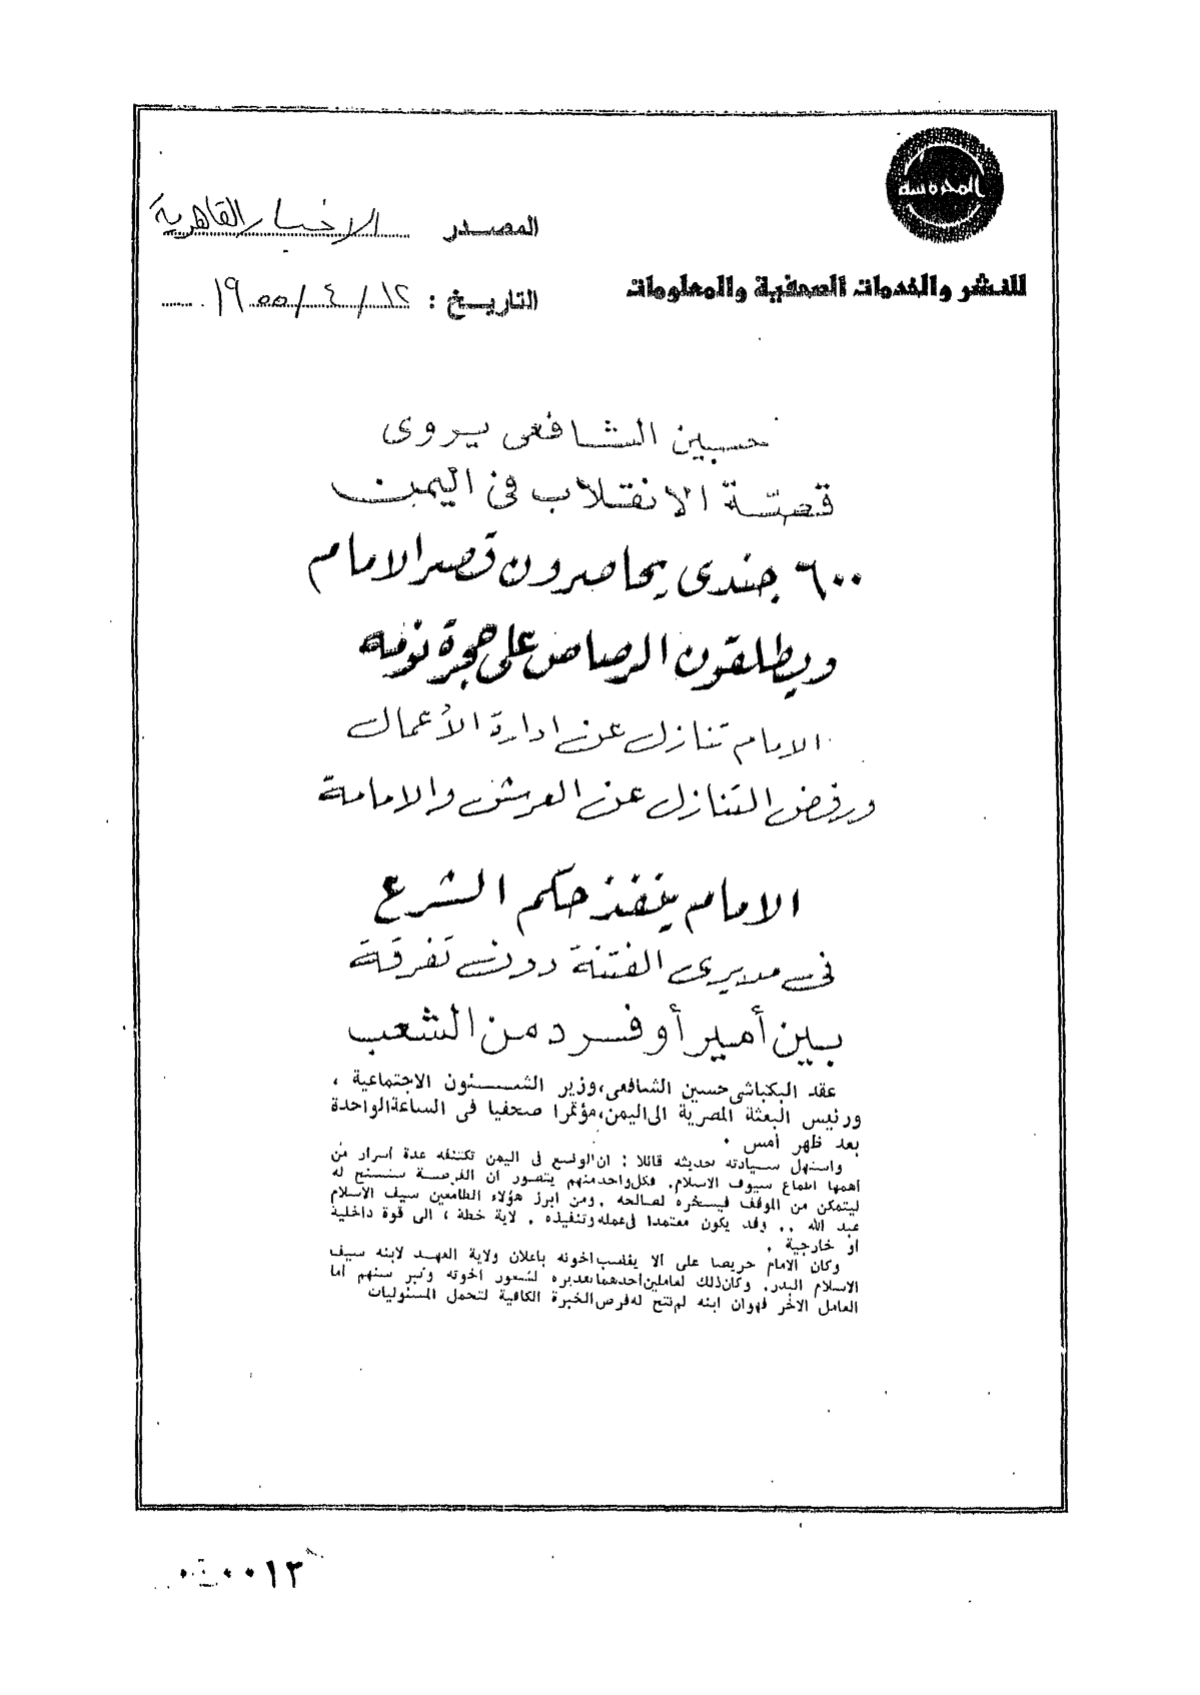 المحروسة
المصدر الاخبار القاهرية
للنشر والخدمات الصحفية والمعلومات
التاريخ : ١٢ / ٤ / ١٩٥٥
حسين الشافعى يروى
قصة الانقلاب فى اليمن
٦٠٠ جندى يحاصرون قصر الامام
ويطلقون الرصاص على حجرة نومه
الامام تنازل عن ادارة الأعمال
ورفض التنازل عن العرش والامامة
الامام ينفذ حكم الشرع
فى مديرى الفتنة دون تفرقة
بين أمير أو فرد من الشعب
عقد البكباشى حسين الشافعى، وزير الشئون الاجتماعية ،
ورئيس البعثة المصرية الى اليمن، مؤتمرا صحفيا فى الساعة الواحدة
بعد ظهر أمس .
واستهل سيادته حديثه قائلا : ان الوضع فى اليمن تكتنفه عدة أسرار من
أهمها اطماع سيوف الاسلام. فكل واحد منهم يتصور ان الفرصة ستسنح له
ليتمكن من الموقف فيسخره لصالحه . ومن أبرز هؤلاء الطامعين سيف الاسلام
عبد الله .. وقد يكون معتمدا فى عمله وتنفيذه . لاية خطة ، الى قوة داخلية
او خارجية .
وكان الامام حريصا على ألا يغضب اخوته باعلان ولاية العهد لابنه سيف
الاسلام البدر. وكان ذلك لعاملين أحدهما تقديره لشعور اخوته وكبر سنهم أما
العامل الآخر فهو ان ابنه لم تتح له فرص الخبرة الكافية لتحمل المسئوليات